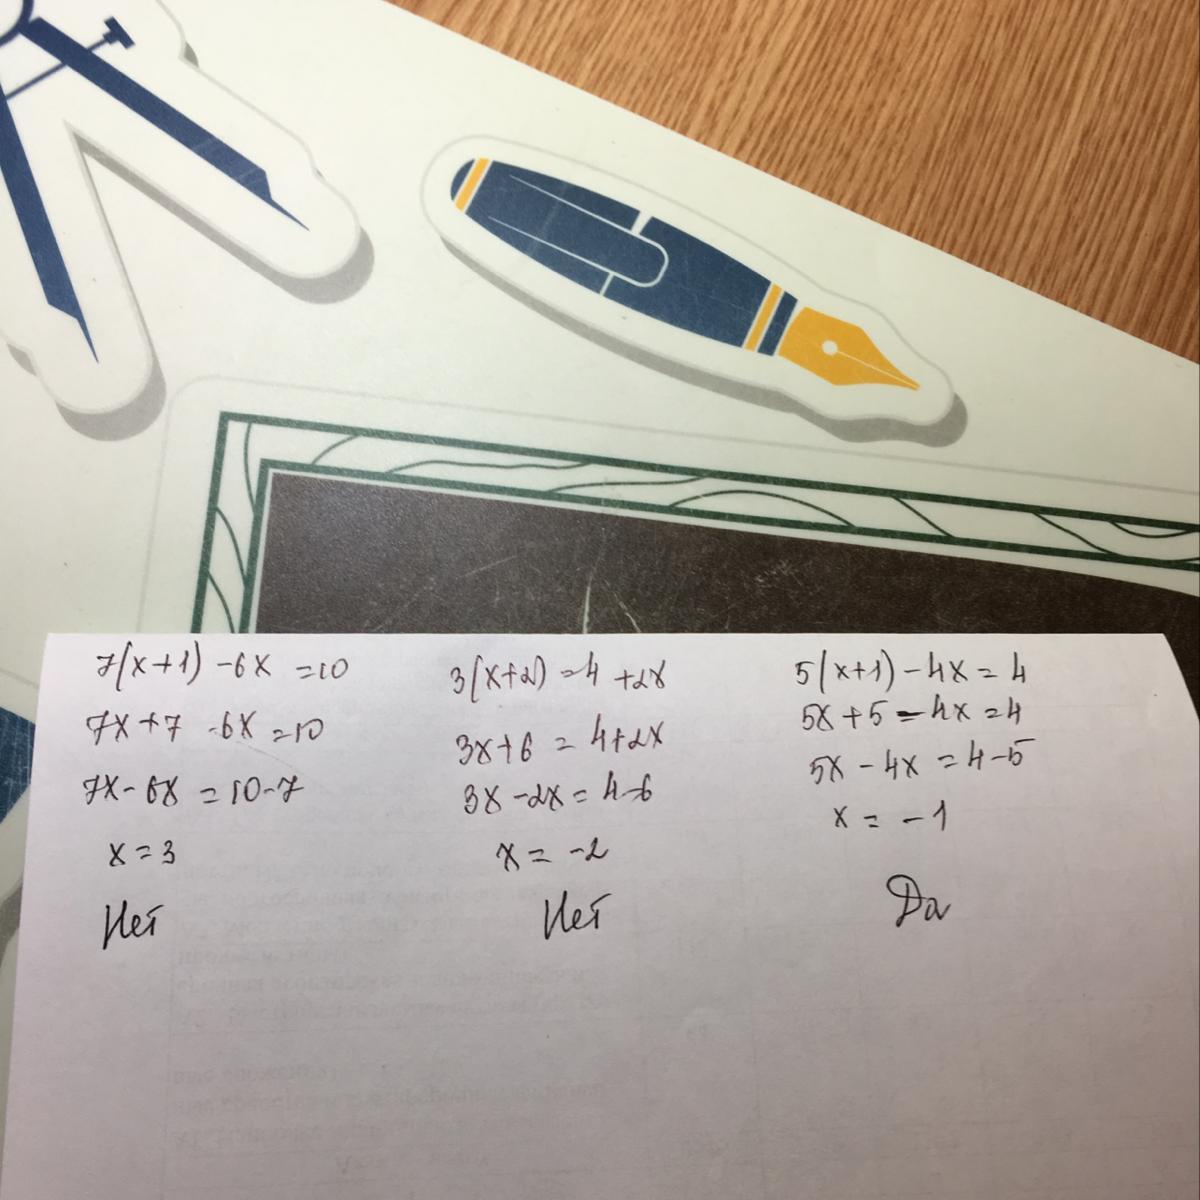 7(x+1) -6x =10
7x+7 -6x =10
7x-6x =10-7
x=3
Нет
3(x+2) =4 +2x
3x+6 =4+2x
3x-2x=4-6
x= -2
Нет
5(x+1)-4x=4
5x+5-4x=4
5x-4x=4-5
x= -1
Да